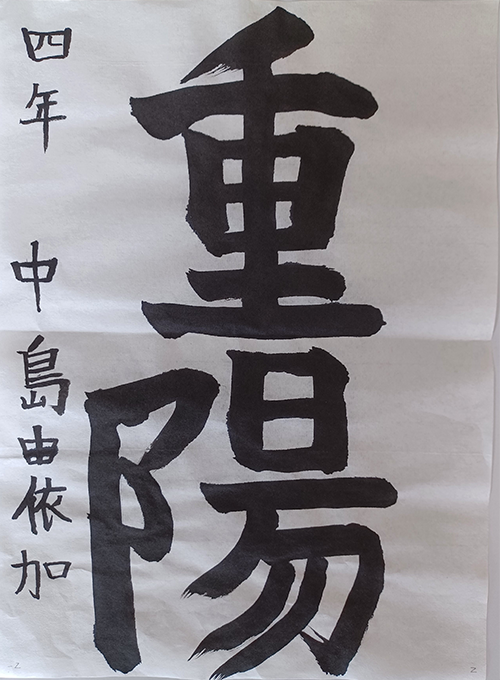 重陽
四年 中島由依加